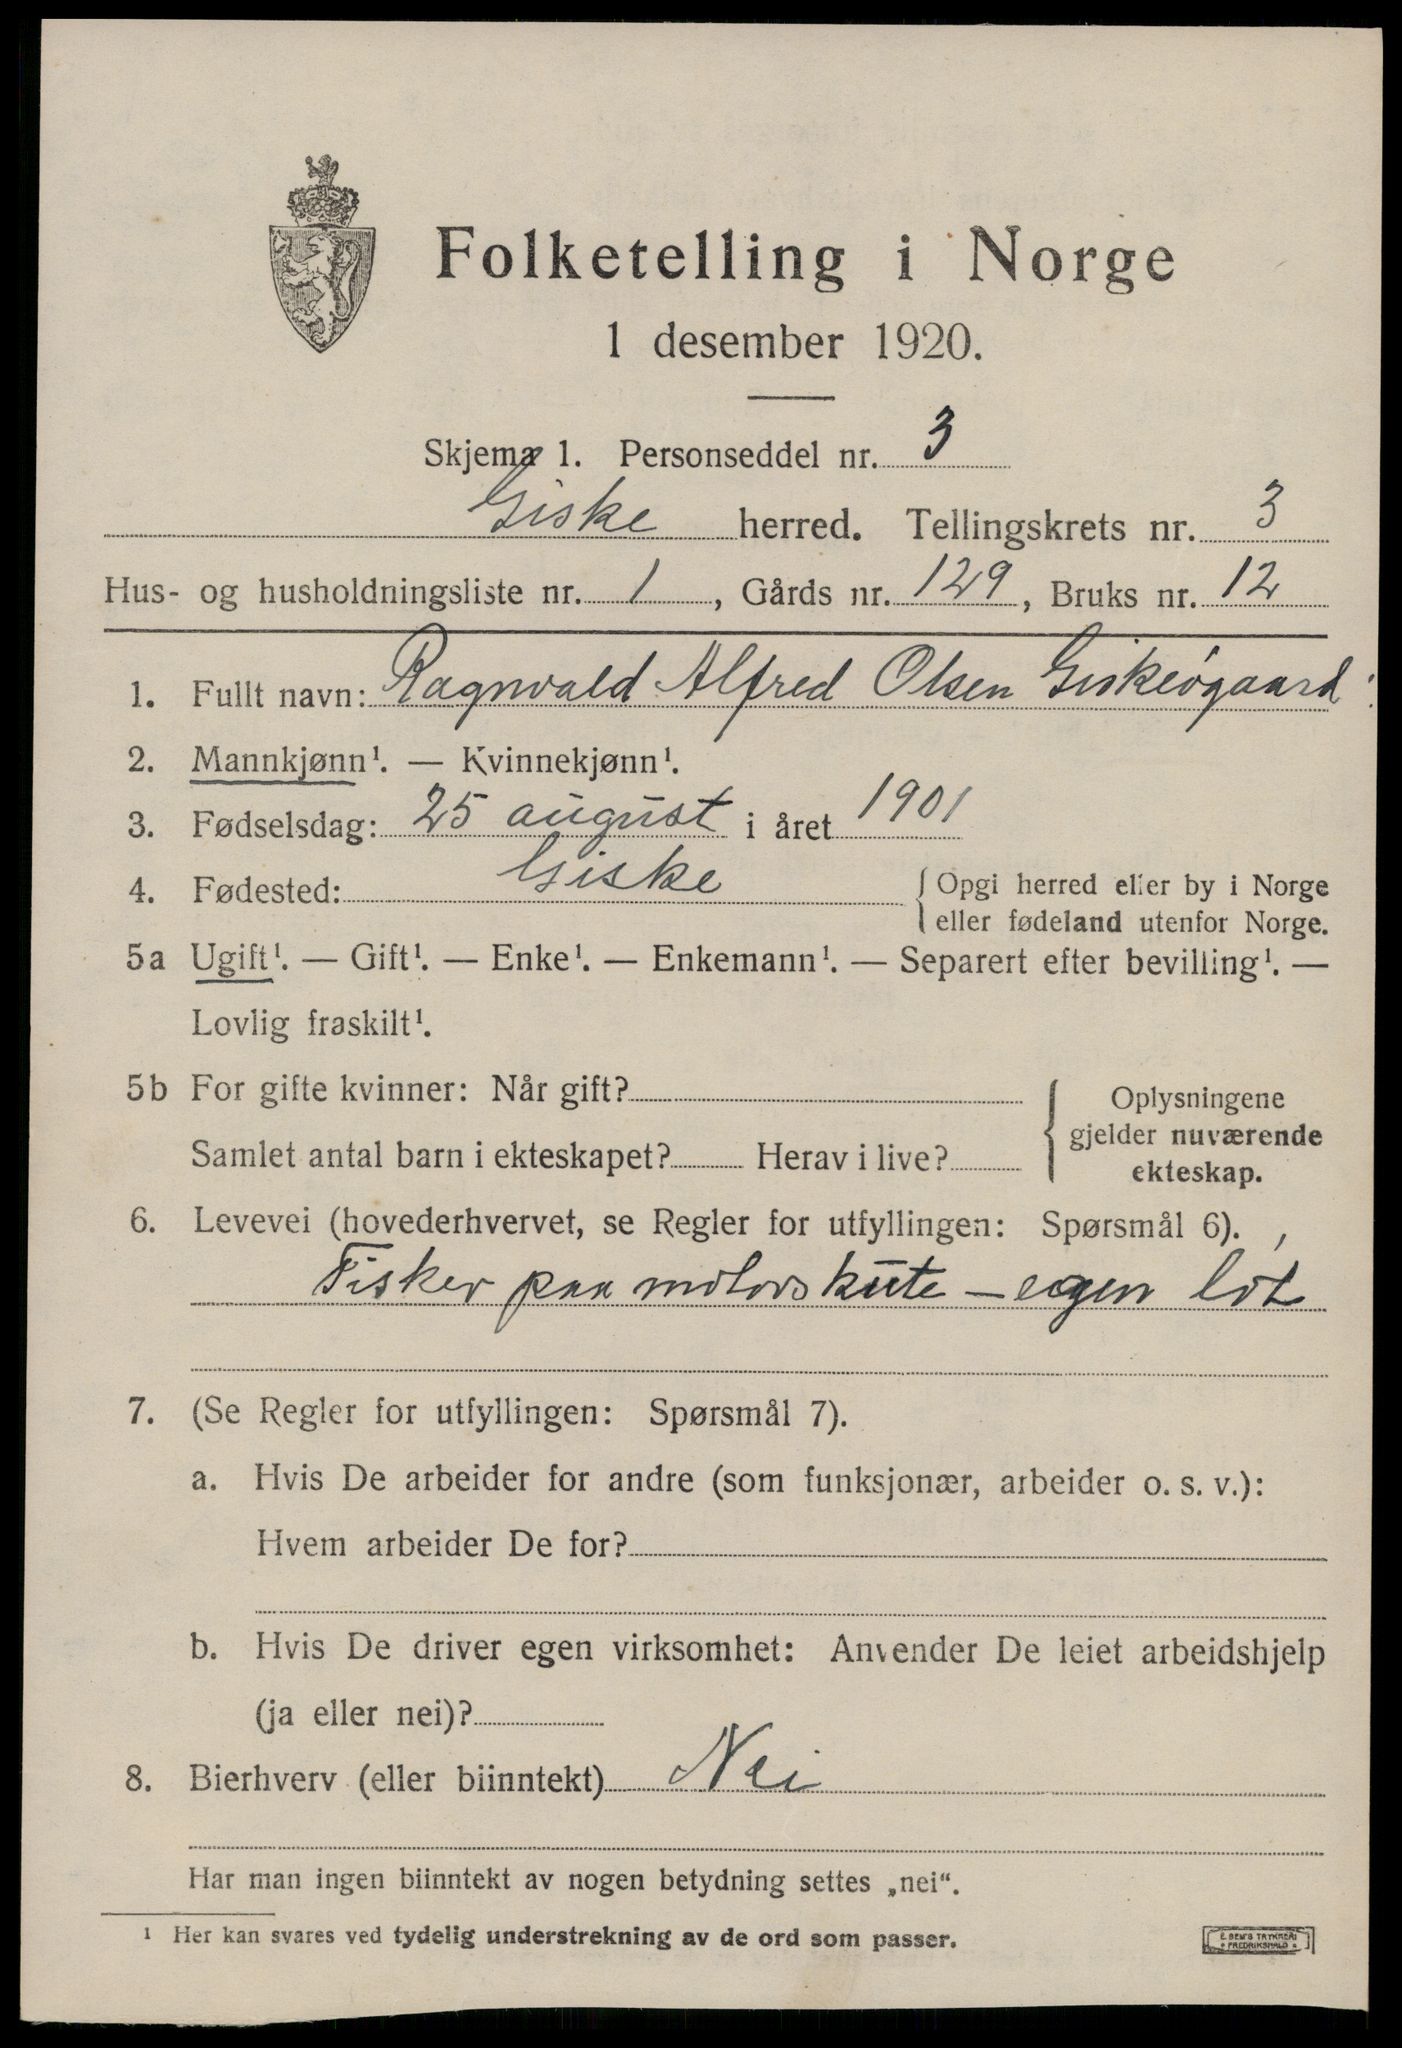 Folketelling i Norge
1 desember 1920.
Skjema 1. Personseddel nr. 3
Giske herred. Tellingskrets nr. 3
Hus- og husholdningsliste nr. 1, Gårds nr. 129, Bruks nr. 12
1. Fullt navn: Ragnvald Alfred Olsen Giskeøgaard
2. Mannkjønn¹. — Kvinnekjønn¹.
3. Fødselsdag: 25 august i året 1901
4. Fødested: Giske { Opgi herred eller by i Norge
eller fødeland utenfor Norge.
5a Ugift¹. — Gift¹. — Enke¹. — Enkemann¹. — Separert efter bevilling¹. —
Lovlig fraskilt¹.
5b For gifte kvinner: Når gift? { Oplysningene
gjelder nuværende
Samlet antal barn i ekteskapet? Herav i live?
ekteskap.
6. Levevei (hovederhvervet, se Regler for utfyllingen: Spørsmål 6).
Fisker paa motorskøite – egen lot
7. (Se Regler for utfyllingen: Spørsmål 7).
a. Hvis De arbeider for andre (som funksjonær, arbeider o. s. v.):
Hvem arbeider De for?
b. Hvis De driver egen virksomhet: Anvender De leiet arbeidshjelp
(ja eller nei)?
8. Bierhverv (eller biinntekt) Nei
Har man ingen biinntekt av nogen betydning settes „nei“.
¹ Her kan svares ved tydelig understrekning av de ord som passer.
E. SEM'S TRYKKERI
FREDRIKSHALD